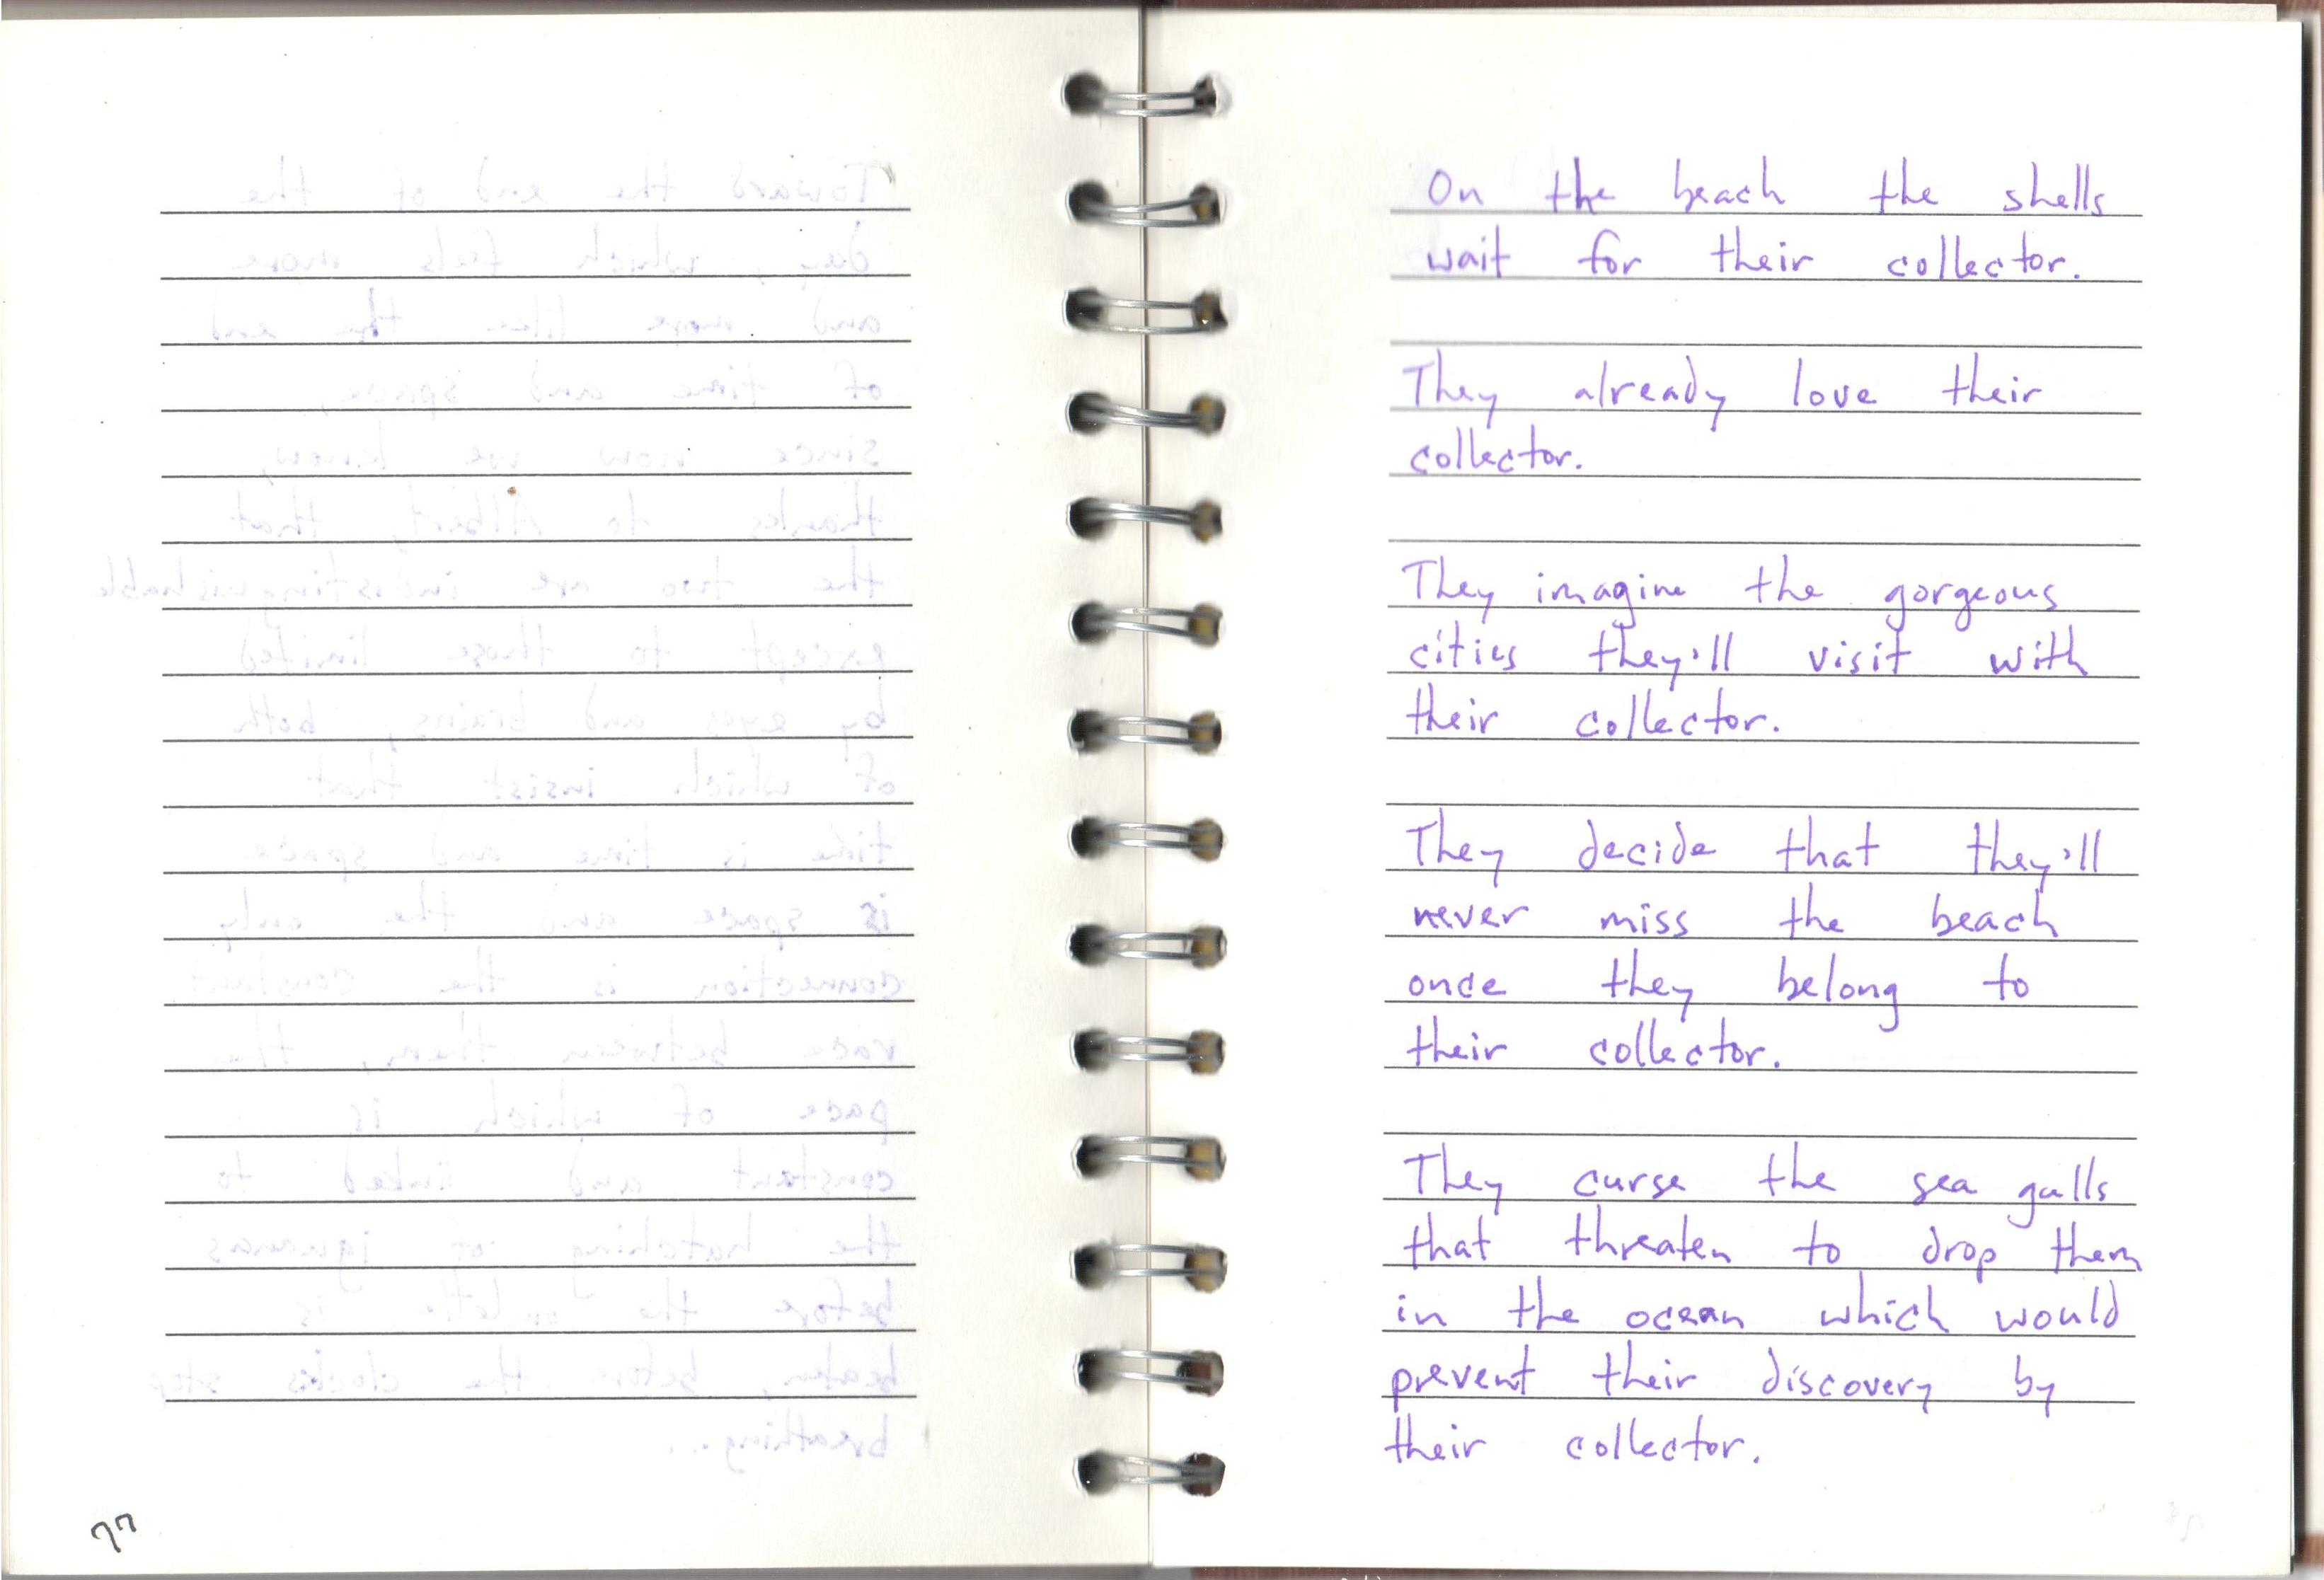 77
On the beach the shells
wait for their collector.
They already love their
collector.
They imagine the gorgeous
cities they'll visit with
their collector.
They decide that they'll
never miss the beach
once they belong to
their collector.
They curse the sea gulls
that threaten to drop them
in the ocean which would
prevent their discovery by
their collector.